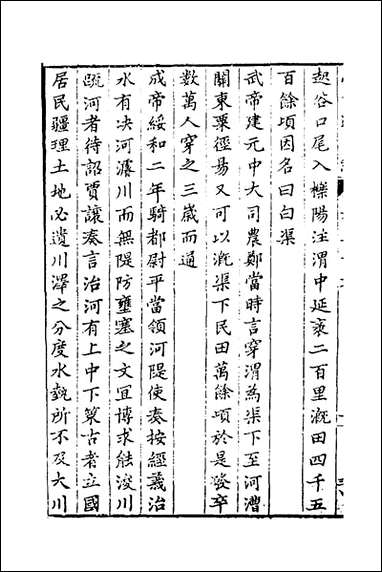 起谷口尾入櫟陽注渭中延袤二百里溉田四千五
百餘頃因名曰白渠
武帝建元中大司農鄭當時言穿渭為渠下至河漕
關東粟徑易又可以溉渠下民田萬餘頃於是發卒
數萬人穿之三歲而通
成帝綏和二年騎都尉平當領河隄使奏按經義治
水有決河濬川而無隄防壅塞之文宜博求能浚川
䟽河者待詔賈讓奏言治河有上中下策古者立國
居民疆理土地必遺川澤之分度水執所不及大川